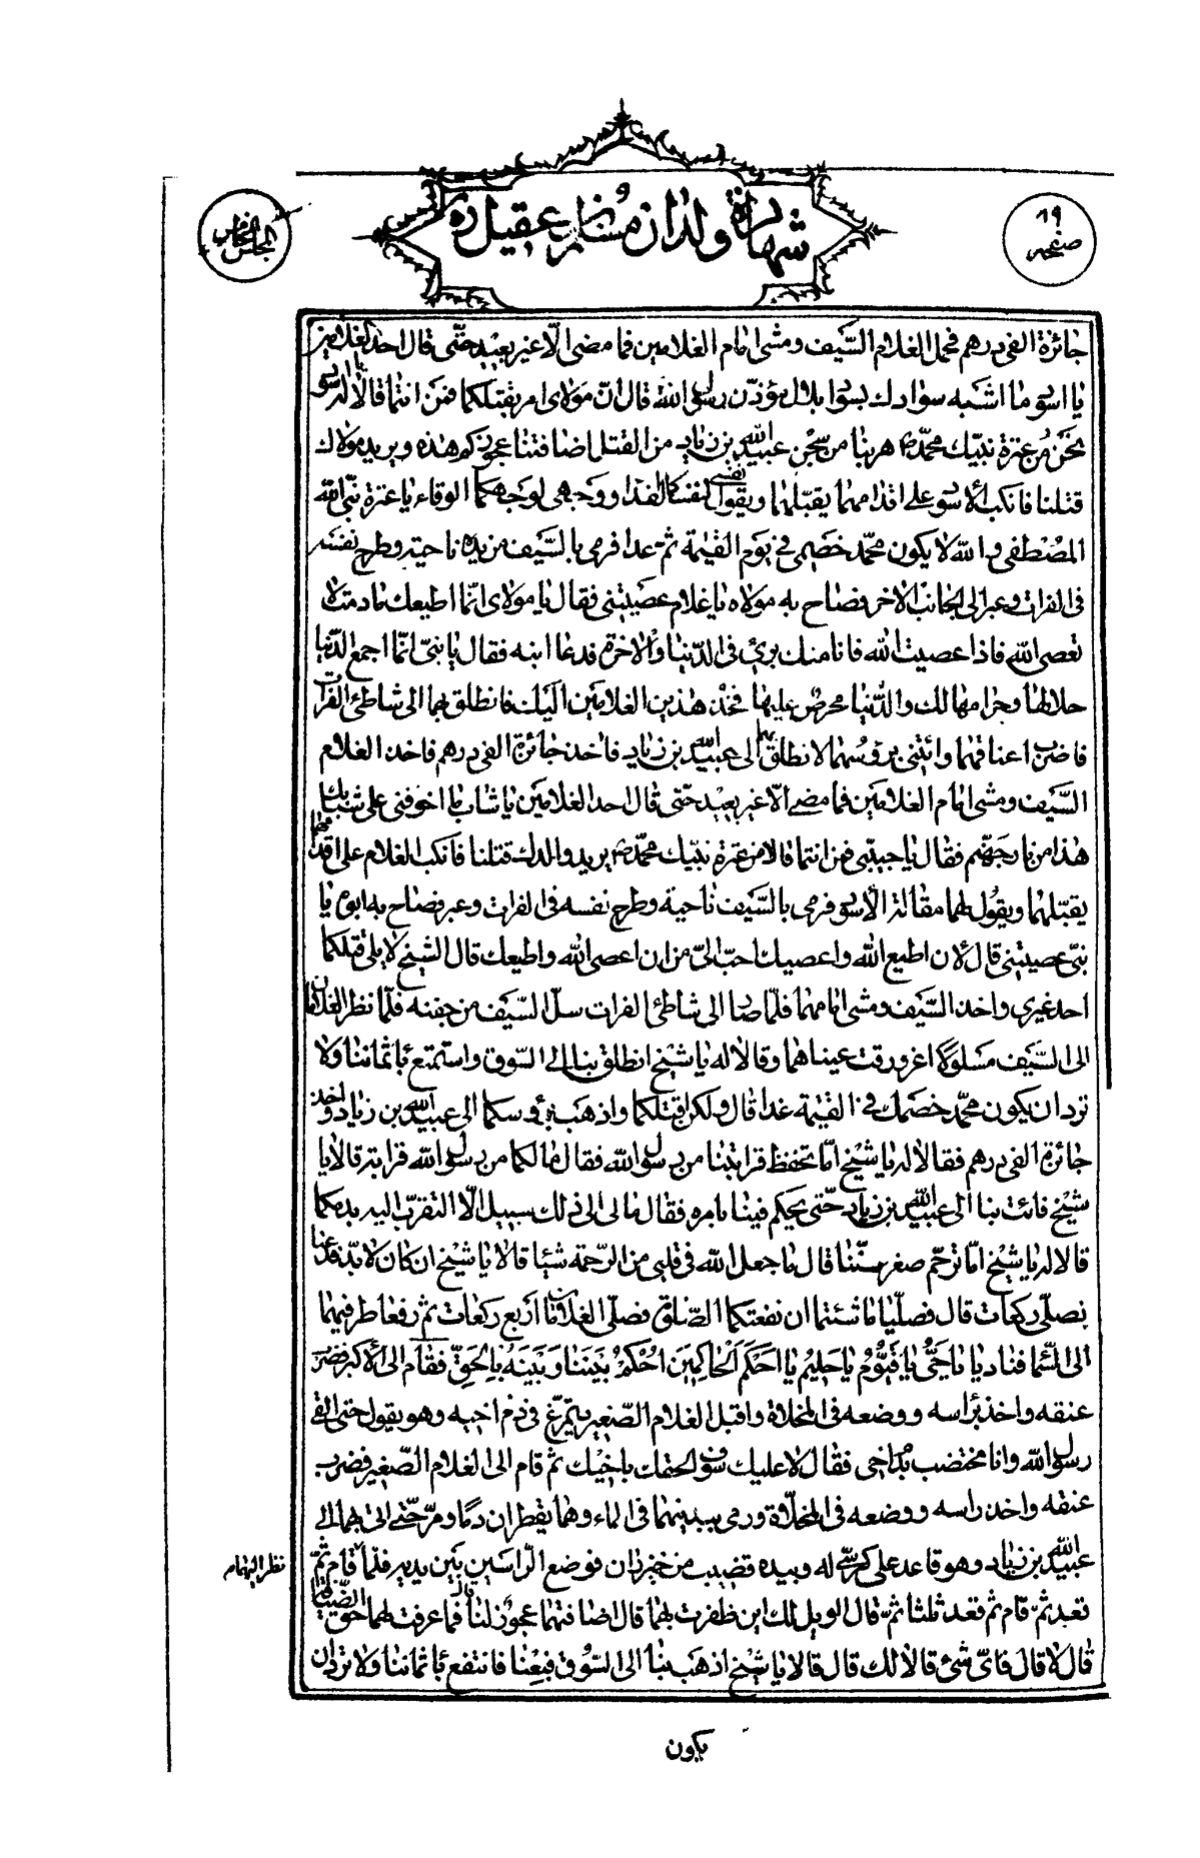 صفحه ١٩
شهادة ولدان مسلم بن عقيل ره
المجلس الخامس
جائزة الفى درهم فحمل الغلام السّيف و مشى امام الغلامين فما مضى الّا غير بعيد حتّى قال احد الغلامين
يا اسود ما اشبه سوادك بسواد بلال مؤذّن رسول الله قال انّ مولاى امر بقتلكما فمن انتما قالا له يا اسود
نحن من عترة نبيّك محمّد ص هربنا من سجن عبيد الله بن زياد من القتل اضافتنا عجوزكم هذه و يريد مولاك
قتلنا فانكب الاسود على اقدامهما يقبّلهما و يقول نفسى لنفسكما الفدا و وجهى لوجهكما الوقاء يا عترة نبىّ الله
المصطفى و الله لا يكون محمّد خصمى فى يوم القيمة ثمّ عدا فرمى بالسّيف من يده ناحية و طرح نفسه
فى الفرات و عبر الى الجانب الاخر فصاح به مولاه يا غلام عصيتنى فقال يا مولاى انّما اطيعك ما دمت لا
تعصى الله فاذا عصيت الله فانا منك برئ فى الدّنيا و الاخرة فدعا ابنه فقال يا بنىّ انّما اجمع الدّنيا
حلالها و حرامها لك و الدّنيا محرص عليها فخذ هذين الغلامين اليك فانطلق بهما الى شاطئ الفرات
فاضرب اعناقهما و ائتنى برؤسهما لانطلق بهما الى عبيد الله بن زياد فاخذ جائزة الفى درهم فاخذ الغلام
السّيف و مشى امام الغلامين فما مضى الّا غير بعيد حتى قال احد الغلامين يا شاب ما اخوفنى على شبابك
هذا من نار جهنّم فقال يا حبيبى فمن انتما قالا من عترة نبيّك محمّد ص يريد والدك قتلنا فانكب الغلام على اقدامهما
يقبّلهما و يقول لهما مقالة الاسود فرمى بالسّيف ناحية و طرح نفسه فى الفرات و عبر فصاح به ابوه يا
بنىّ عصيتنى قال لان اطيع الله و اعصيك احبّ الىّ من ان اعصى الله و اطيعك قال الشيخ لا يلى قتلكما
احد غيرى و اخذ السّيف و مشى امامهما فلمّا صار الى شاطئ الفرات سلّ السّيف من جفنه فلمّا نظر الغلامان
الى السّيف مسلولا اغرورقت عيناهما و قالا له يا شيخ انطلق بنا الى السّوق و استمتع باثماننا و لا
ترد ان يكون محمّد خصمك فى القيمة غدا قال و لكن اقتلكما و اذهب برؤسكما الى عبيد الله بن زياد و اخذ
جائزة الفى درهم فقالا له يا شيخ امّا تحفظ قرابتنا من رسول الله فقال ما لكما من رسول الله قرابة قالا يا
شيخ فائت بنا الى عبيد الله بن زياد حتّى يحكم فينا بامره فقال ما لى الى ذلك سبيل الّا التقرّب اليه بدمكما
قالا له يا شيخ امّا ترحّم صغر سنّنا قال ما جعل الله فى قلبى من الرّحمة شيئا قالا يا شيخ ان كان لا بدّ فدعنا
نصلّى ركعات قال فصلّيا ما شئتما ان نفعتكما الصّلوة فصلّى الغلامان اربع ركعات ثم رفعا طرفيهما
الى السّما فناديا يا حىّ يا قيّوم يا حليم يا احكم الحاكمين احكم بيننا و بينه بالحقّ فقام الى الاكبر فضرب
عنقه و اخذ براسه و وضعه فى المخلاة و اقبل الغلام الصّغير يتمرّغ فى دم اخيه و هو يقول حتى القى
رسول الله و انا مختضب بدم اخى فقال لا عليك سوف الحقك باخيك ثم قام الى الغلام الصّغير فضرب
عنقه و اخذ راسه و وضعه فى المخلاة و رمى ببدنيهما فى الماء و هما يقطران دما و مرّ حتّى اتى بهما الى
عبيد الله بن زياد و هو قاعد على كرسىّ له و بيده قضيب من خيزران فوضع الرّاسين بين يديه فلمّا قام ثمّ
نظر اليهما
قعد ثمّ قام ثم قعد ثلثا ثمّ قال الويل لك اين ظفرت بهما قال اضافتهما عجوز لنا قال فما عرفت لهما حق الضّيافة
قال لا قال فاىّ شئ قالا لك قال قالا يا شيخ اذهب بنا الى السّوق فبعنا فانتفع باثماننا و لا ترد ان
يكون